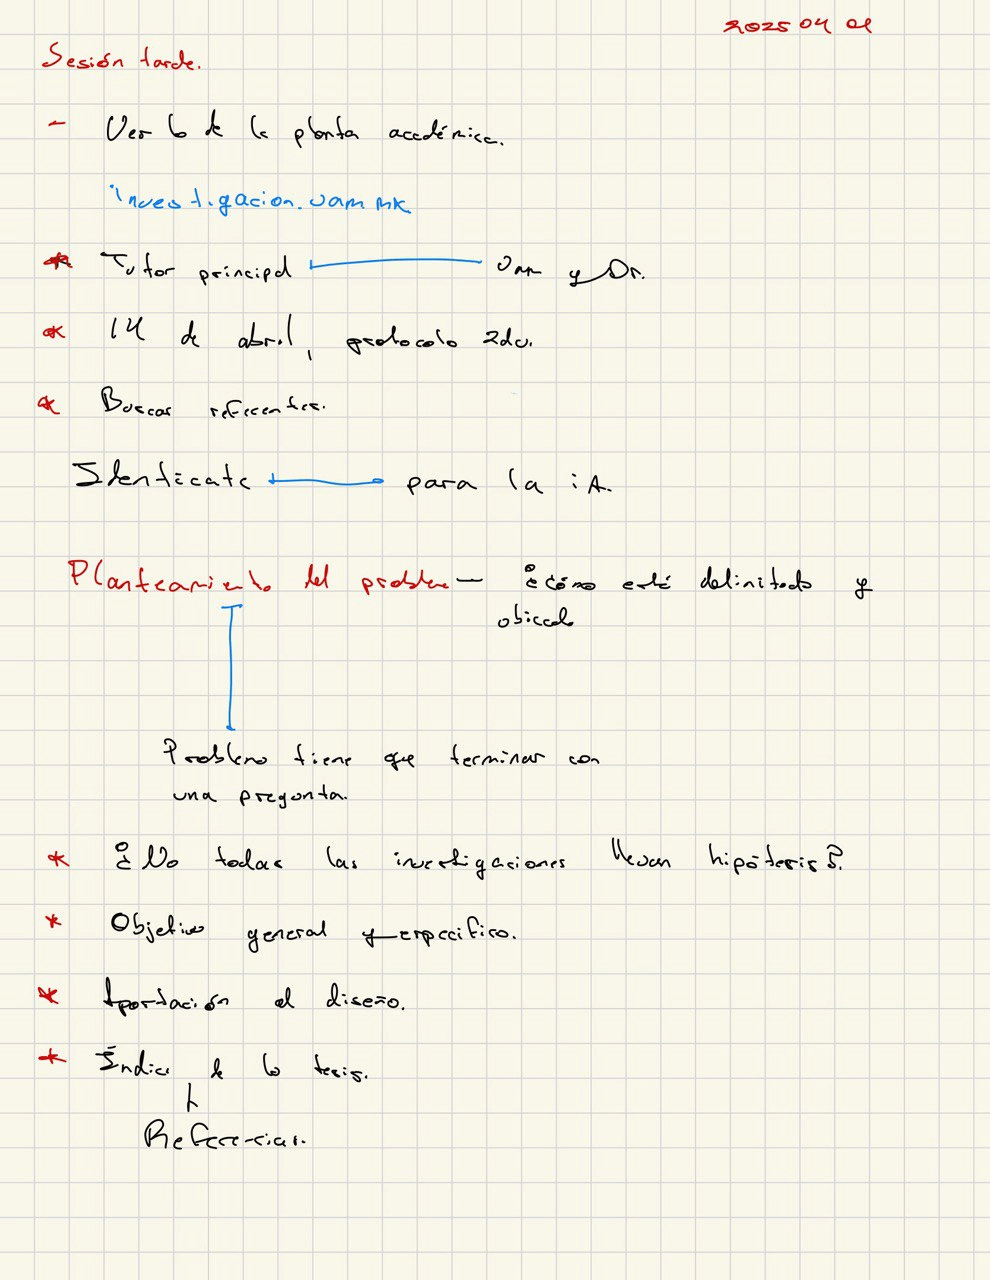 2025 04 01
Sesión tarde.
- Ver lo de la planta académica.
investigacion.uam.mx
* Tutor principal — Uam y Dr.
* 14 de abril, protocolo 2do.
* Buscar referentes.
para la iA.
Planteamiento del problema — ¿cómo está delimitado y
Problema tiene que terminar con
una pregunta.
* ¿No todas las investigaciones llevan hipótesis?.
* Objetivo general y especifico.
* Aportación al diseño.
* Índice de la tesis.
Referencias.